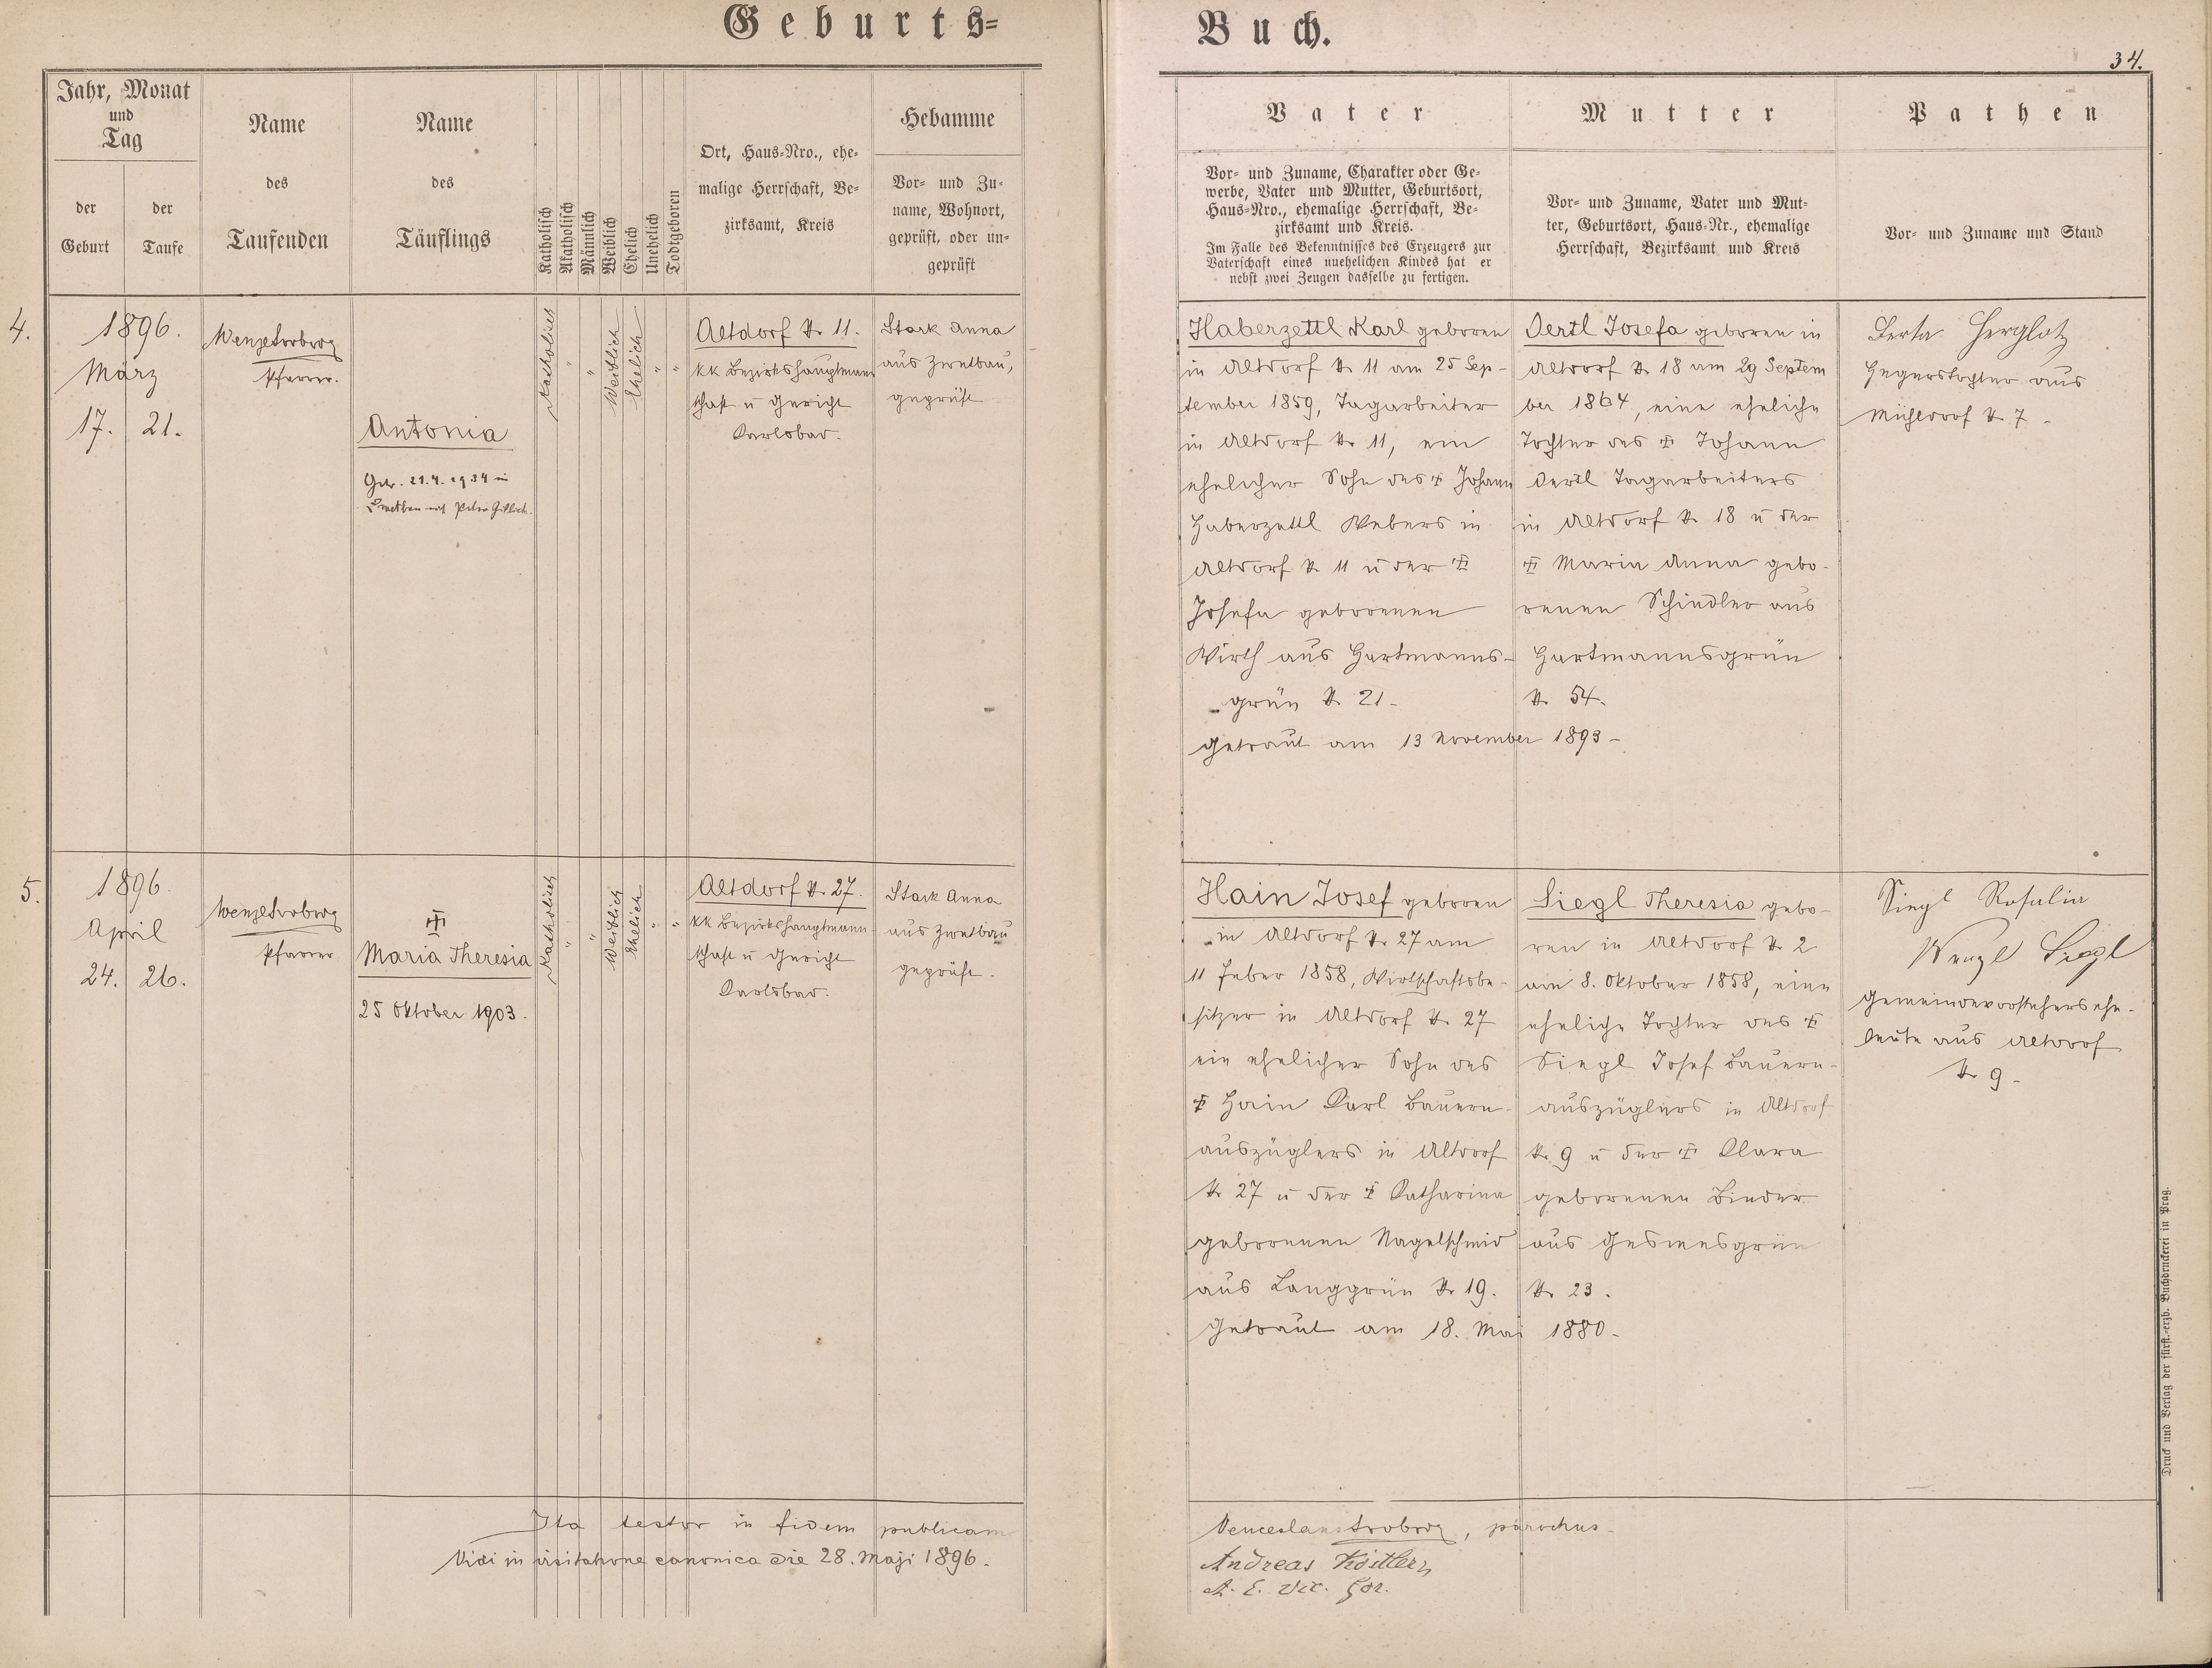 Geburts=
Buch.
34.
Jahr, Monat
und
Tag
der
Geburt
der
Taufe
Name
des
Taufenden
Name
des
Täuflings
Katholisch
Akatholisch
Männlich
Weiblich
Ehelich
Unehelich
Todtgeboren
Ort, Haus=Nro., ehe=
malige Herrschaft, Be=
zirksamt, Kreis
Hebamme
Vor= und Zu=
name, Wohnort,
geprüft, oder un=
geprüft
Vater
Vor= und Zuname, Charakter oder Ge=
werbe, Vater und Mutter, Geburtsort,
Haus=Nro., ehemalige Herrschaft, Be=
zirksamt und Kreis.
Im Falle des Bekenntnisses des Erzeugers zur
Vaterschaft eines unehelichen Kindes hat er
nebst zwei Zeugen dasselbe zu fertigen.
Mutter
Vor= und Zuname, Vater und Mut=
ter, Geburtsort, Haus=Nr., ehemalige
Herrschaft, Bezirksamt und Kreis
Pathen
Vor= und Zuname und Stand
4.
1896.
März
17. 21.
Pfarrer.
Antonia
Getr. 21.4.1934 in
mit Peter
Katholisch
"
"
Weiblich
Ehelich
"
"
Altdorf N. 11.
KK Bezirkshauptmann
schaft u Gericht
Karlsbad.
Stark Anna
aus Zwetbau,
geprüft
Haberzettl Karl geboren
in Altdorf N. 11 am 25 Sep-
tember 1859, Tagarbeiter
in Altdorf N. 11, ein
ehelicher Sohn des ☩ Johann
Haberzettl Webers in
Altdorf N. 11 u der ☩
Josefa geborenen
Wirth aus Hartmanns-
grün N. 21-
getraut am 13 November 1893-
Oertl Josefa geboren in
Altdorf N. 18 am 29 Septem
ber 1864, eine eheliche
Tochter des ☩ Johann
Oertl Tagarbeiters
in Altdorf N. 18 u der
☩ Maria Anna gebo-
renen Schindler aus
Hartmannsgrün
N. 54.
Berta Herglotz
Hegerstochter aus
Mühldorf N. 7-
5.
1896.
April
24. 26.
Pfarrer
☩
Maria Theresia
25 Oktober 1903.
Katholisch
"
"
Weiblich
Ehelich
"
"
Altdorf N. 27.
KK Bezirkshauptmann-
schaft u Gericht
Karlsbad.
Stark Anna
aus Zwetbau
geprüft.
Hain Josef geboren
in Altdorf N. 27 am
11 Feber 1858, Wirtschaftsbe-
sitzer in Altdorf N. 27
ein ehelicher Sohn des
☩ Hain Karl Bauern-
auszüglers in Altdorf
N. 27 u der ☩ Katharina
geborenen Nagelschmid
aus Langgrün N. 19.
Getraut am 18. Mai 1880-
Siegl Theresia gebo-
ren in Altdorf N. 2
am 8. Oktober 1858, eine
eheliche Tochter des ☩
Siegl Josef Bauern-
auszüglers in Altdorf
N. 9 u der ☩ Clara
geborenen Binder
aus Gesmesgrün
N. 23.
Siegl Rosalia
Wenzl Siegl
Gemeindevorstehersehe-
leute aus Altdorf
N. 9-
Ita testor in fidem publicam
Venceslaus, parochus-
Vidi in visitatione canonica die 28. Maji 1896.
Andreas Köstler,
A. E. Vic. For.
Druck und Verlag der fürst.-erzb. Buchdruckerei in Prag.